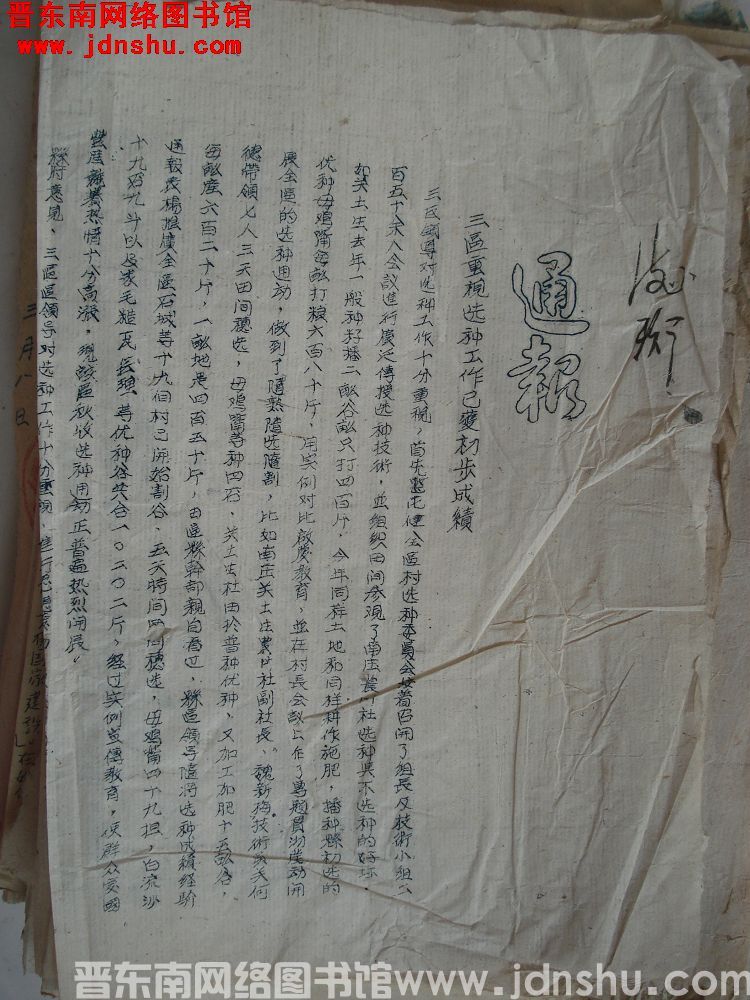 晋东南网络图书馆
www.jdnshu.com
通報
三區重視选种工作已獲初步成績
三區領導对选种工作十分重視，首先整頓健全區村选种委員会接着召開了組長及技術小組二
百五十余人会議進行广泛傳授选种技術，並組织田间参現了南庄農业社选种與不选种的好坏，
如关土生去年一般种籽播二畝谷畝只打四百斤，今年同样土地和同样耕作施肥，播种縣初选的
优种母鸡嘴每畝打粮六百八十斤，用实例对比啟發教育，並在村長会議上作了專題貫彻發动開
展全區的选种運动，做到了隨熟隨选隨割，比如南庄关土生農业社副社長、魏新梅技術員关何
德帶領七人三天田间穗选，母鸡嘴等种四石，关土生社由於普种优种，又加工加肥十五畝谷，
每畝產六百二十斤，一畝地是四百五十斤，由區縣幹部親自看过，縣區領导隨将选种成績經驗
通報表揚推廣全區石城等十九個村已開始割谷，五天時间田间穗选，母鸡嘴四十九担，白流沙
十九石九斗以及
等优种谷共合一〇二〇二斤，經过实例宣傳教育，使群众爱國
豐產
热情十分高漲，現該區秋收选种運动正普遍热烈開展。
縣府意見，三區區領导对选种工作十分重視，進行
三月八日
晋东南网络图书馆www.jdnshu.com